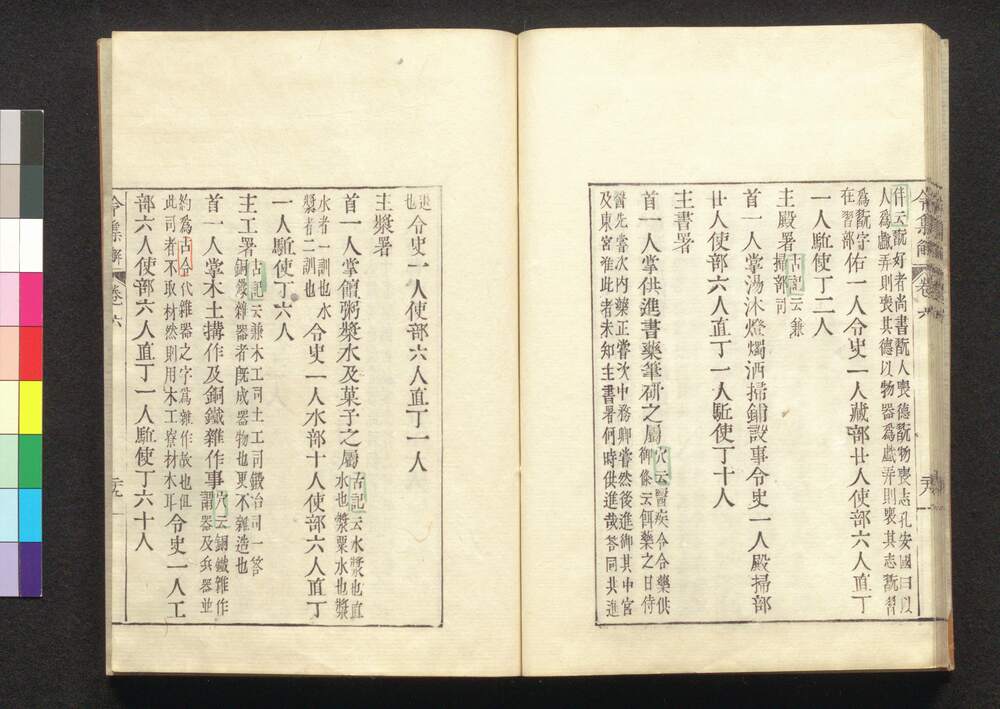 令集解 卷六 廿八
伴云翫好者尚書翫人喪德翫物喪志孔安國曰以
人爲戲弄則喪其德以物器爲戲弄則喪其志翫習
爲翫字
在習部佑一人令史一人藏部廿人使部六人直丁
一人駈使丁二人
主殿署古記云兼
掃部司
首一人掌湯沐燈燭洒掃鋪設事令史一人殿掃部
廿人使部六人直丁一人駈使丁十人
主書署
首一人掌供進書藥筆硏之屬穴云醫疾令合藥供
御條云餌藥之日侍
醫先甞次内藥正甞次中務卿甞然後進御其中宮
及東宮准此者未知主書署何時供進哉答同共進
退
也令史一人使部六人直丁一人
主漿署
首一人掌饘粥漿水及菓子之屬古記云水漿也直
水也漿粟水也漿
水者一訓也水
漿者二訓也令史一人水部十人使部六人直丁
一人駈使丁六人
主工署古記云兼木工司土工司鍛冶司一答
銅鐵雜器者旣成器物也更不雜造也
首一人掌木土搆作及銅鐵雜作事穴云銅鐵雜作
謂器及兵器並
約爲古令代雜器之字爲雜作故也但
此司者不取材然則用木工寮材木耳令史一人工
部六人使部六人直丁一人駈使丁六十人
令集解 卷六 廿九